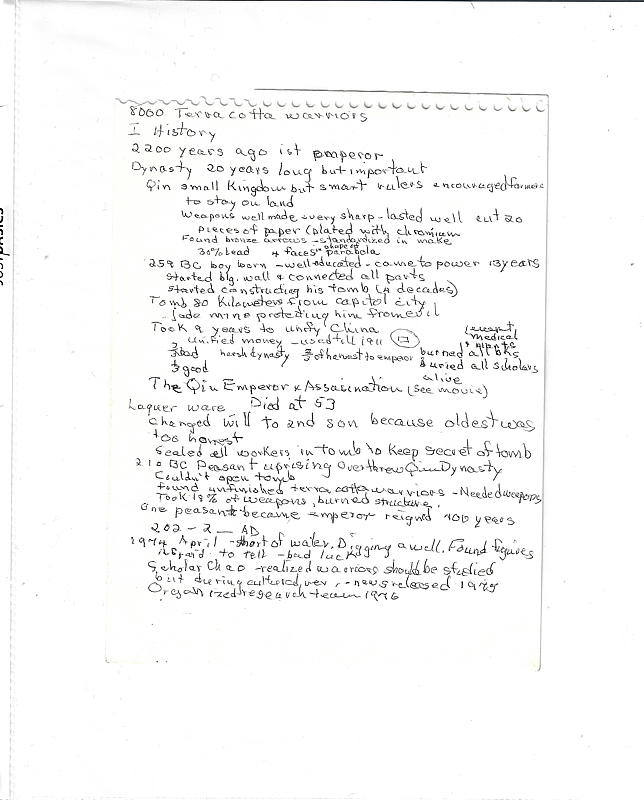 8000 Terra cotta warriors
I History
2200 years ago 1st emperor
Dynasty 20 years long but important
Qin small Kingdom but smart rulers encouraged farmers
to stay on land
Weapons well made - very sharp - lasted well cut 20
pieces of paper (plated with chromium
Found bronze arrows - standardized in make
30% lead 4 faces shape of parabola
259 BC boy born - well educated - came to power 13 years
started big. wall & connected all parts
started constructing his tomb (4 decades)
Tomb 80 Kilometers from capitol city
Jade mine protecting him from evil
Took 9 years to unify China
Unified money - used till 1911
2/3 bad harsh dynasty 2/3 of harvest to emperor
1/3 good
burned all bks
(except medical & plants
buried all scholars
alive
The Qin Emperor & Assasination (see movie)
Laquer ware Died at 53
Changed will to 2nd son because oldest was
too honest
Sealed all workers in tomb to keep secret of tomb
210 BC Peasant uprising Overthrew Qin Dynasty
Couldn't open tomb
found unfinished terra cotta warriors - Needed weapons
Took 18% of weapons, burned structure.
One peasant became emperor reigned 400 years
202 - 2 — AD
1974 April - short of water, Digging a well. Found figures
Afraid to tell - bad luck
Scholar Chao - realized warriors should be studied
but during cultural rev. - news released 1975
Organized research team 1976